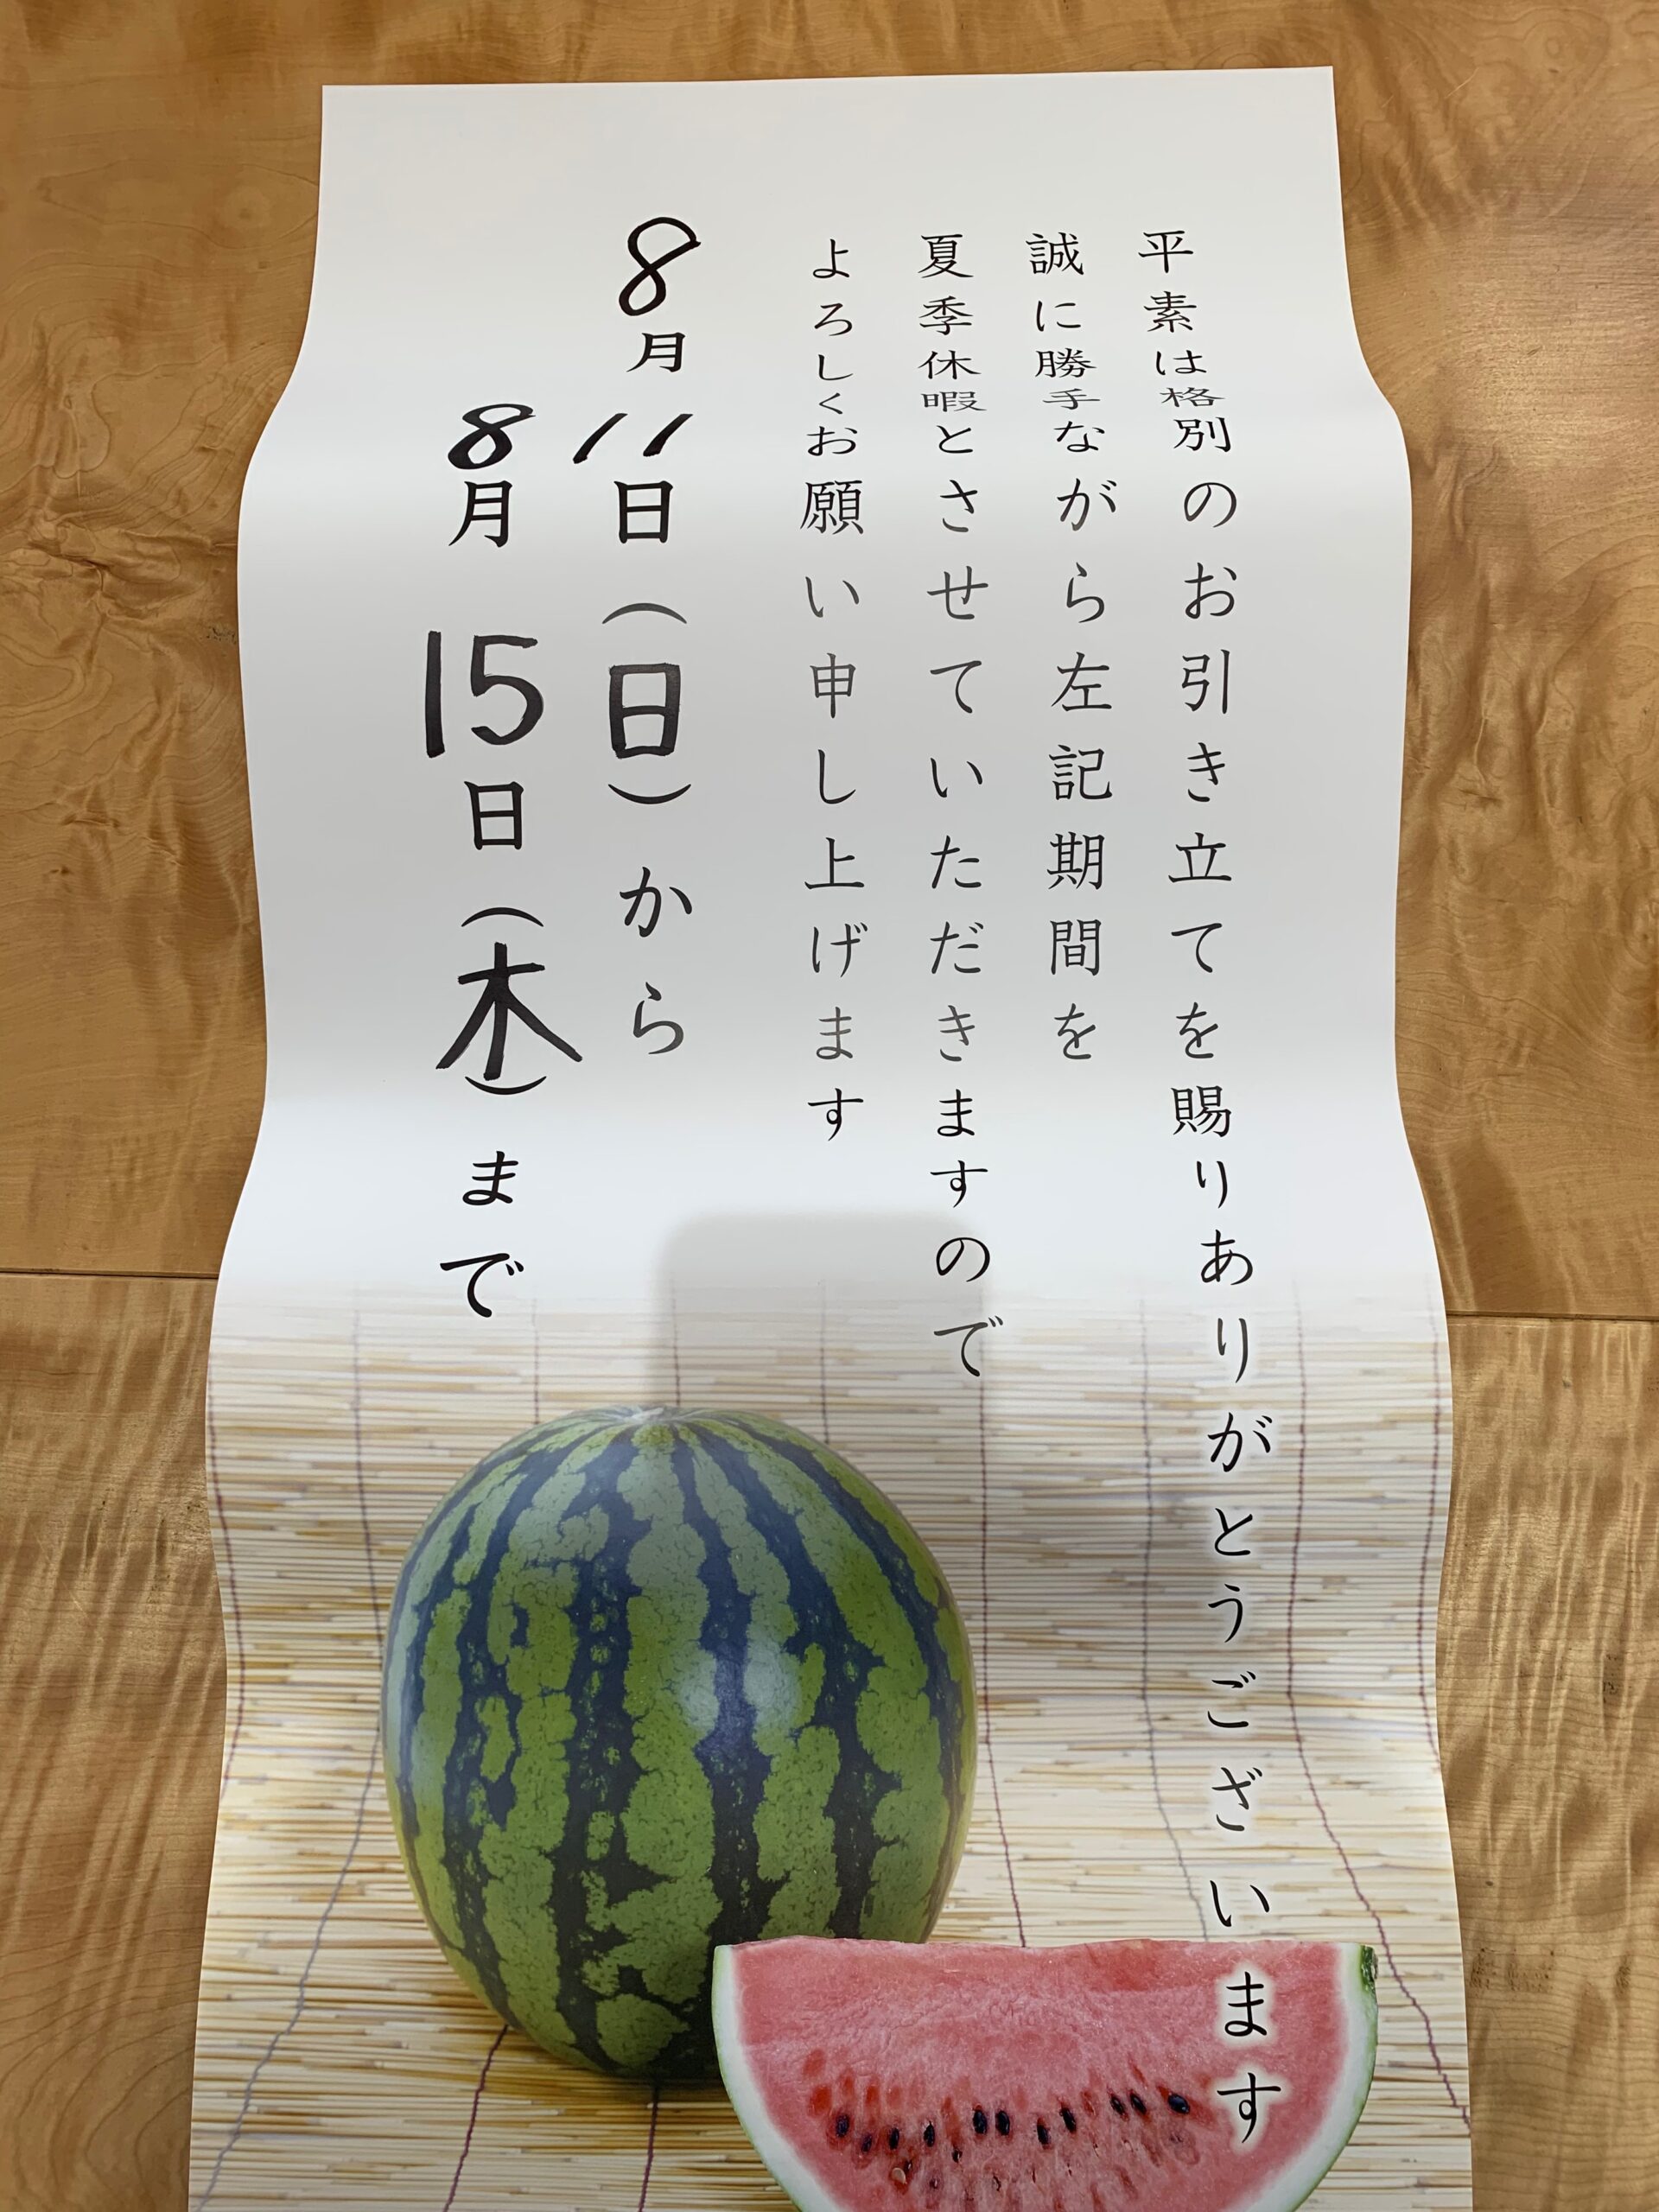 平素は格別のお引き立てを賜りありがとうございます
誠に勝手ながら左記期間を
夏季休暇とさせていただきますので
よろしくお願い申し上げます
8月11日(日)から
8月15日(木)まで